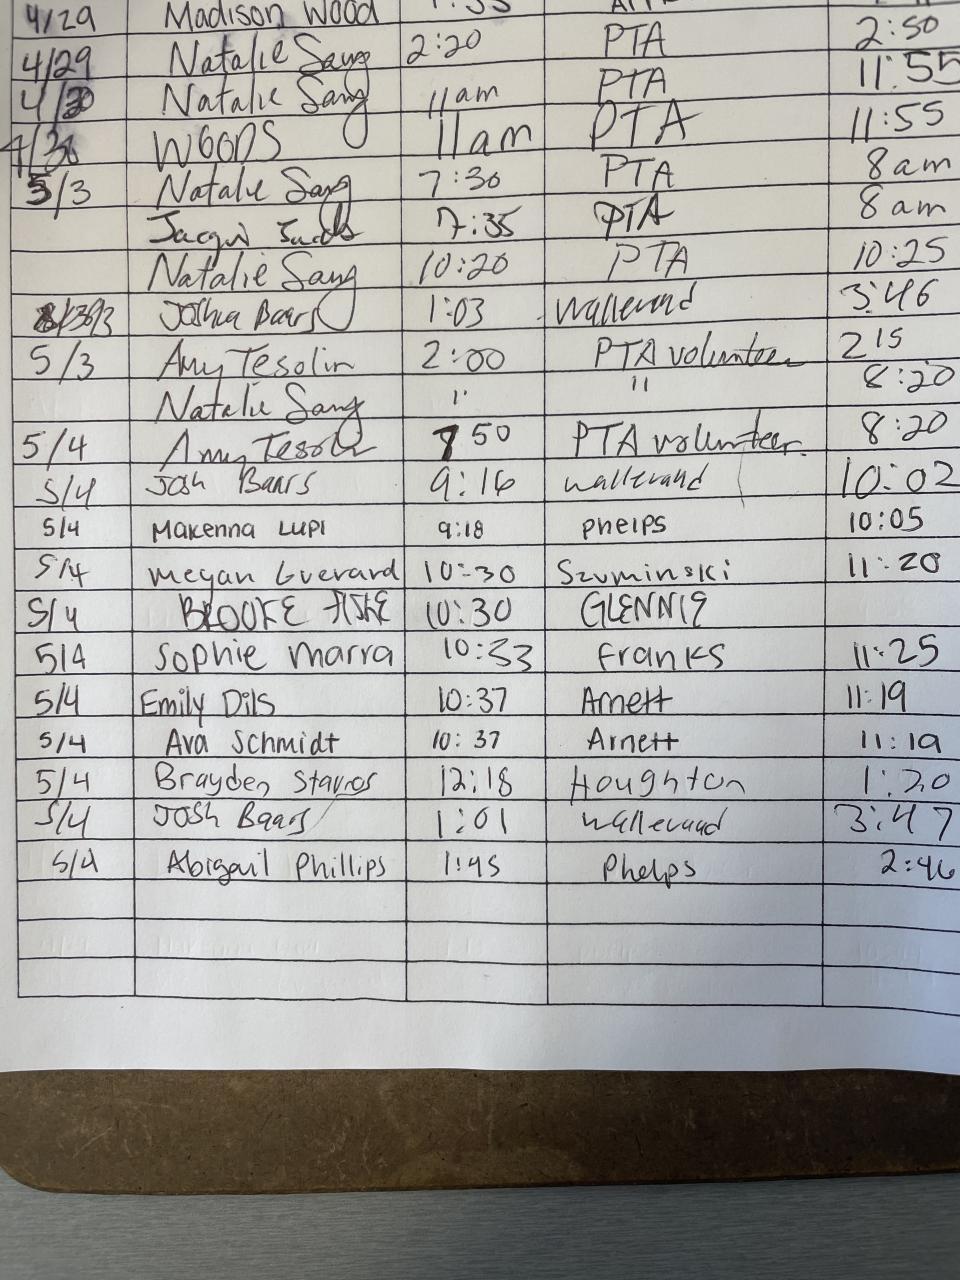 4/29 Madison Wood
4/29 Natalie Sang 2:20 PTA 2:50
4/30 Natalie Sang 11am PTA 11:55
4/30 WOODS 11am PTA 11:55
5/3 Natalie Sang 7:30 PTA 8am
Jacqui 7:35 PTA 8am
Natalie Sang 10:20 PTA 10:25
Joshua Baars 1:03 Wallerand 3:46
5/3 Amy Tesolin 2:00 PTA volunteer 215
Natalie Sang " " 8:20
5/4 Amy Tesolin 750 PTA volunteer 8:20
5/4 Josh Baars 9:16 wallerand 10:02
5/4 Makenna Lupi 9:18 phelps 10:05
5/4 Megan Guerard 10:30 Szuminski 11:20
5/4 BROOKE FISKE 10:30 GLENNIE
5/4 Sophie Marra 10:33 Franks 11:25
5/4 Emily Dils 10:37 Arnett 11:19
5/4 Ava Schmidt 10:37 Arnett 11:19
5/4 Brayden Stavros 12:18 Houghton 1:20
5/4 Josh Baars 1:01 wallerand 3:47
5/4 Abigail Phillips 1:45 Phelps 2:46